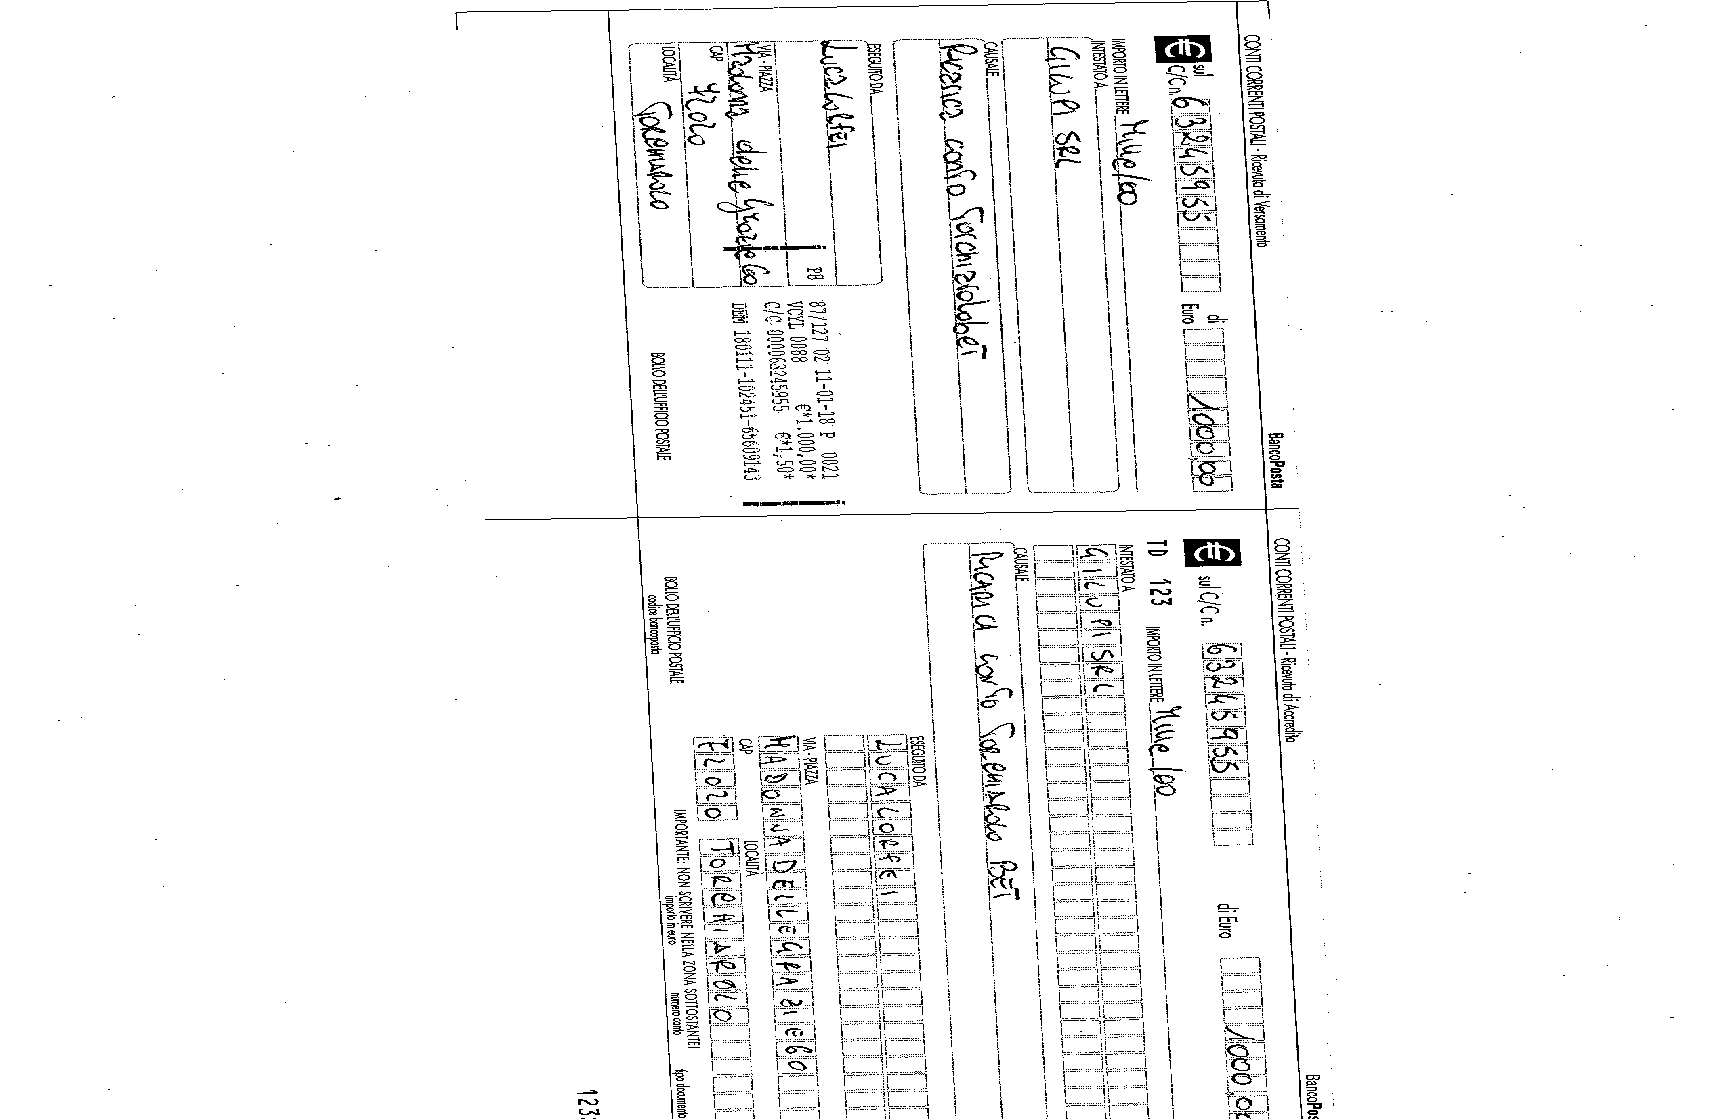 CONTI CORRENTI POSTALI - Ricevuta di Versamento
BancoPosta
sul C/C n. 63245955
di Euro 1000,00
IMPORTO IN LETTERE Mille/00
INTESTATO A
GILUPI SRL
CAUSALE
Ricarica conto Torchiarolobet
ESEGUITO DA
Luca Lorfei
VIA - PIAZZA
Madonna delle Grazie 60
CAP
72020
LOCALITÀ
Torchiarolo
PB
87/127 02 11-01-18 P 0021
VCYL 0088 €*1.000,00*
C/C 000063245955 €*1,50*
DEM 180111-102451-65609143
BOLLO DELL'UFFICIO POSTALE
CONTI CORRENTI POSTALI - Ricevuta di Accredito
BancoPos
sul C/C n. 63245955
di Euro 1000,00
TD 123 IMPORTO IN LETTERE Mille/00
INTESTATO A
GILUPI SRL
CAUSALE
RICARICA conto Torchiarolo BET
ESEGUITO DA
LUCA LORFEI
VIA - PIAZZA
MADONNA DELLE GRAZIE 60
CAP
72020
LOCALITÀ
TORCHIAROLO
BOLLO DELL'UFFICIO POSTALE
codice bancoposta
IMPORTANTE: NON SCRIVERE NELLA ZONA SOTTOSTANTE!
importo in euro
numero conto
tipo documento
123